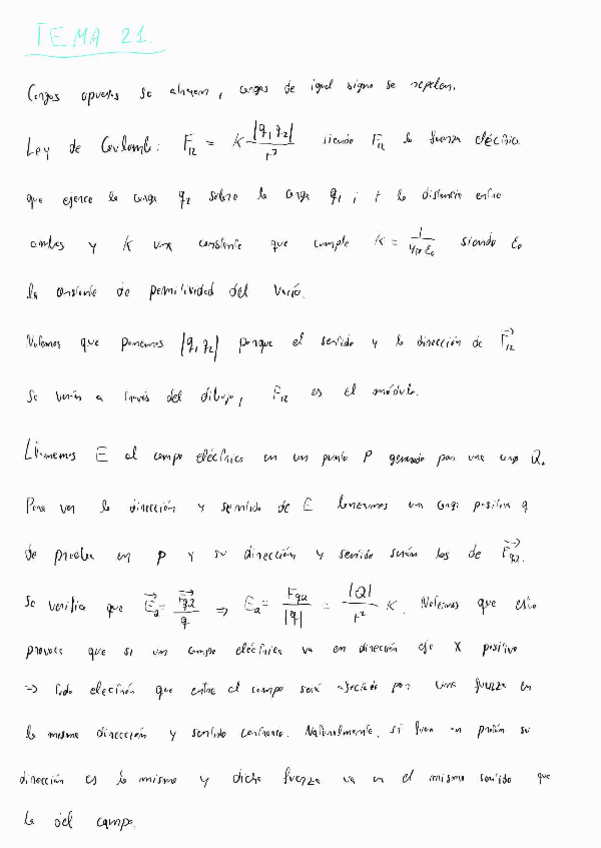 TEMA 21.
Cargas opuestas se atraen, cargas de igual signo se repelen.
Ley de Coulomb: F₁₂ = K |q₁q₂| / r² siendo F₁₂ la fuerza eléctrica
que ejerce la carga q₂ sobre la carga q₁; r la distancia entre
ambas y K una constante que cumple K = 1 / 4πε₀ siendo ε₀
la constante de permitividad del vacío.
Notemos que ponemos |q₁q₂| porque el sentido y la dirección de F⃗₁₂
se verán a través del dibujo, F₁₂ es el módulo.
Llamemos E al campo eléctrico en un punto P generado por una carga Q.
Para ver la dirección y sentido de E tomamos una carga positiva q
de prueba en P y su dirección y sentido serán los de F⃗qQ.
Se verifica que E⃗Q = F⃗qQ / q ⇒ EQ = FqQ / |q| = |Q| / r² K. Notemos que esto
provoca que si un campo eléctrico va en dirección eje X positivo
⇒ todo electrón que entre al campo será afectado por una fuerza en
la misma dirección y sentido contrario. Naturalmente, si fuera un protón su
dirección es la misma y dicha fuerza va en el mismo sentido que
la del campo.